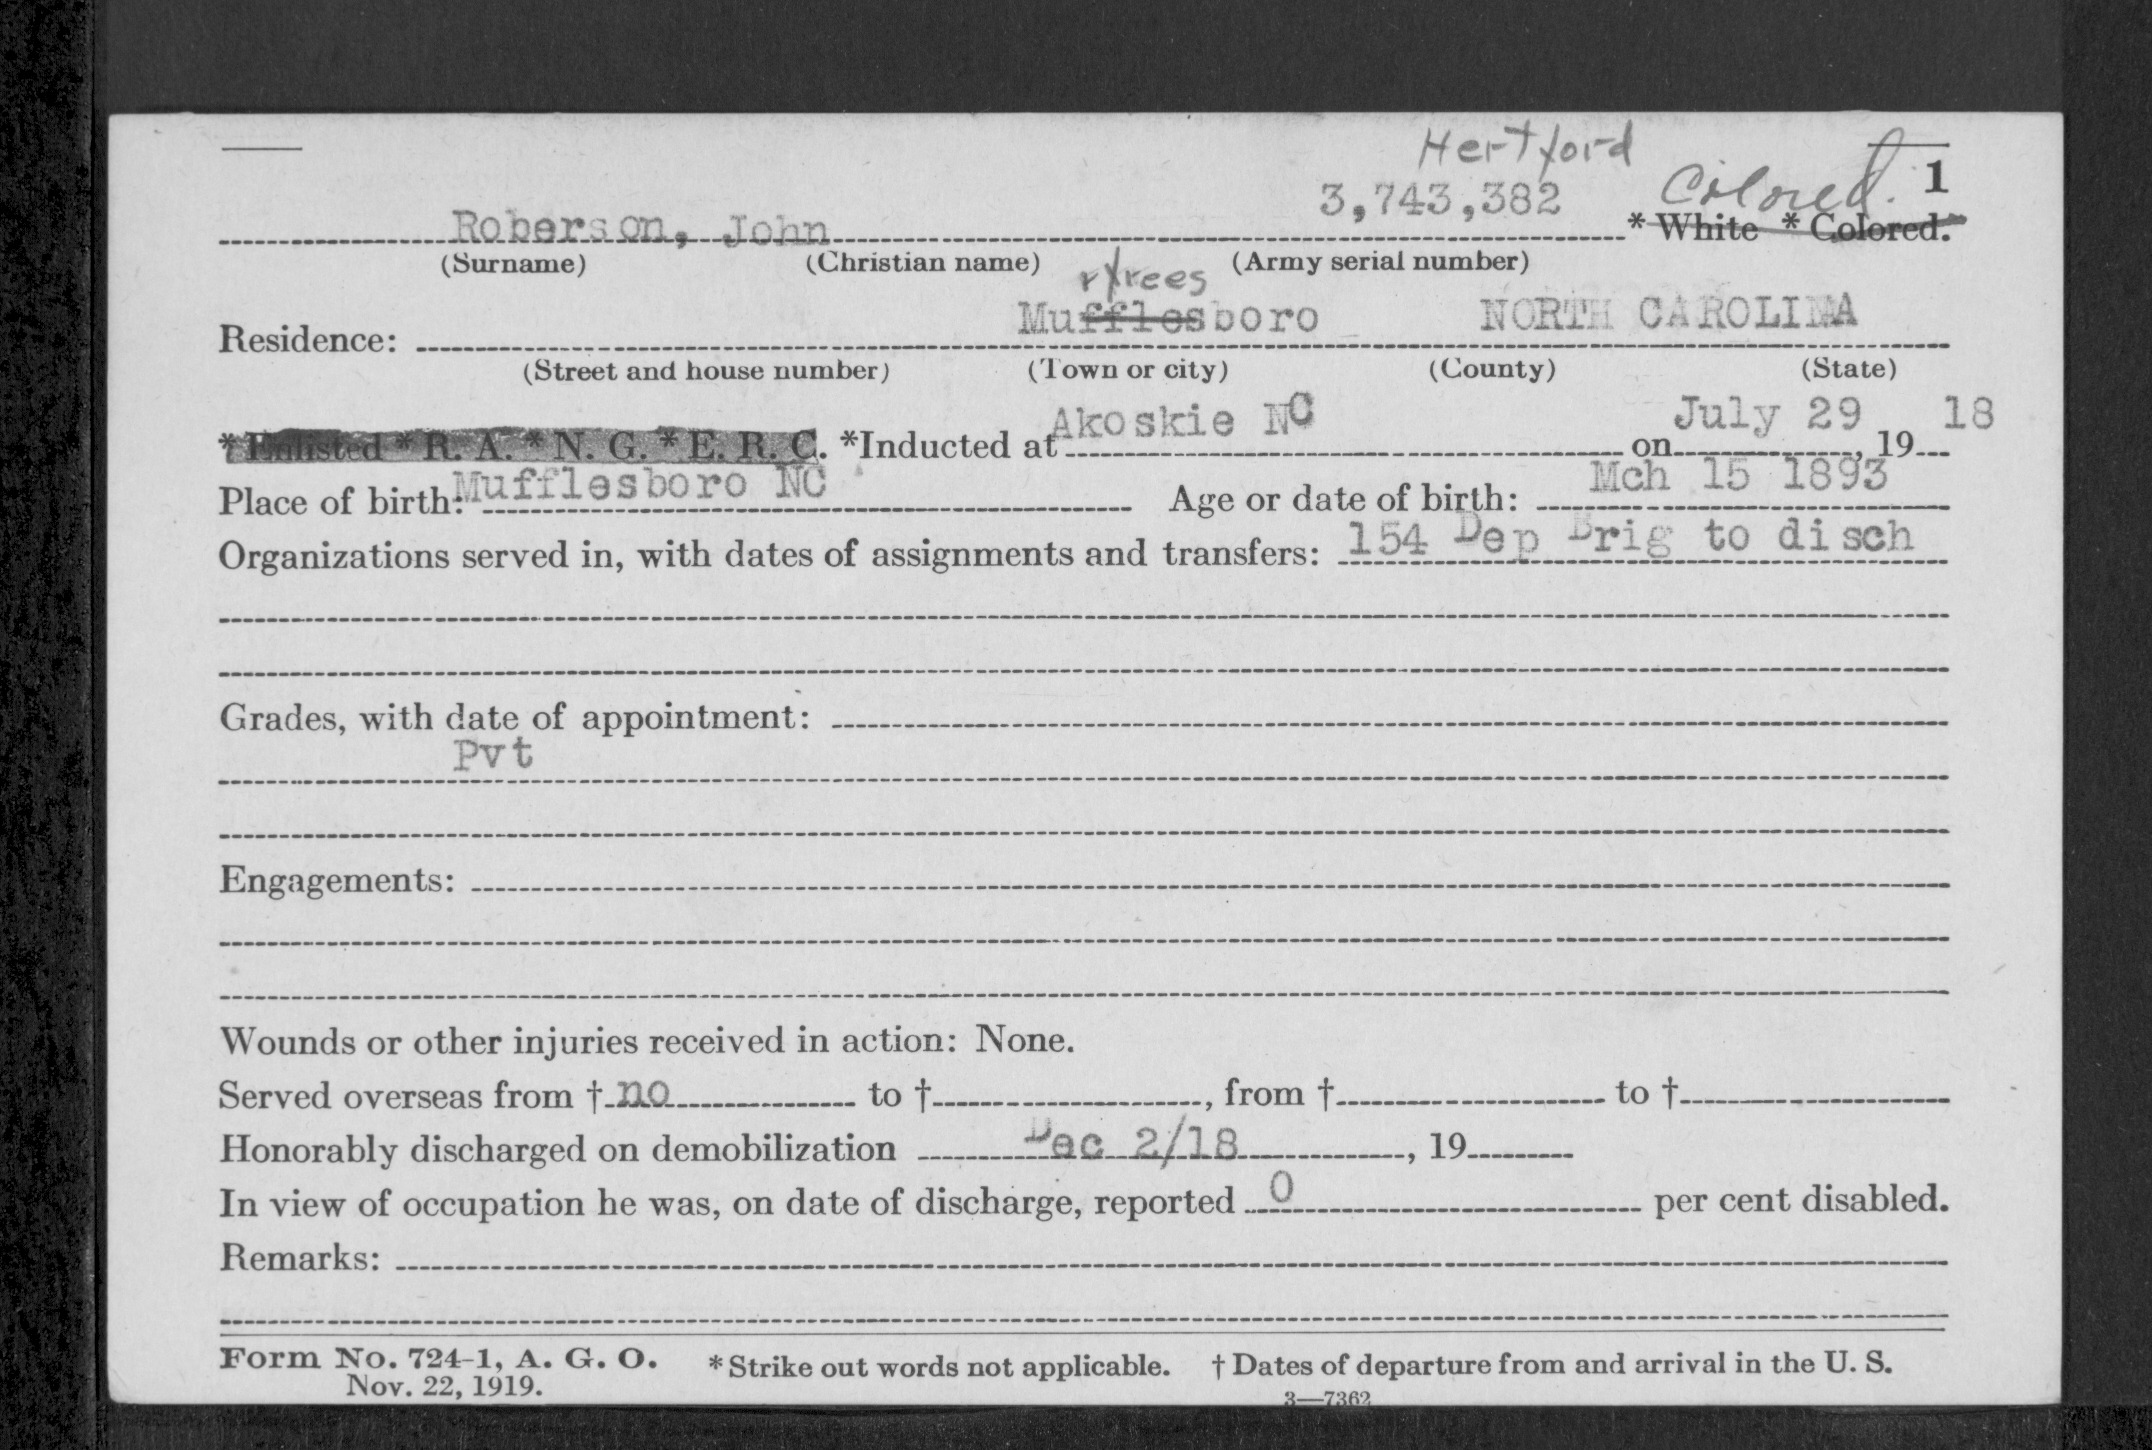 Hertford
Colored. 1
Roberson, John 3,743,382 * White * Colored.
(Surname) (Christian name) (Army serial number)
rfrees
Residence: Mufflesboro NORTH CAROLINA
(Street and house number) (Town or city) (County) (State)
* Enlisted * R. A. * N. G. * E. R. C. *Inducted at Akoskie NC on July 29, 19 18
Place of birth: Mufflesboro NC Age or date of birth: Mch 15 1893
Organizations served in, with dates of assignments and transfers: 154 Dep Brig to disch
Grades, with date of appointment:
Pvt
Engagements:
Wounds or other injuries received in action: None.
Served overseas from † no to †, from † to †
Honorably discharged on demobilization Dec 2/18, 19
In view of occupation he was, on date of discharge, reported 0 per cent disabled.
Remarks:
Form No. 724-1, A. G. O. *Strike out words not applicable. † Dates of departure from and arrival in the U. S.
Nov. 22, 1919.
3—7362